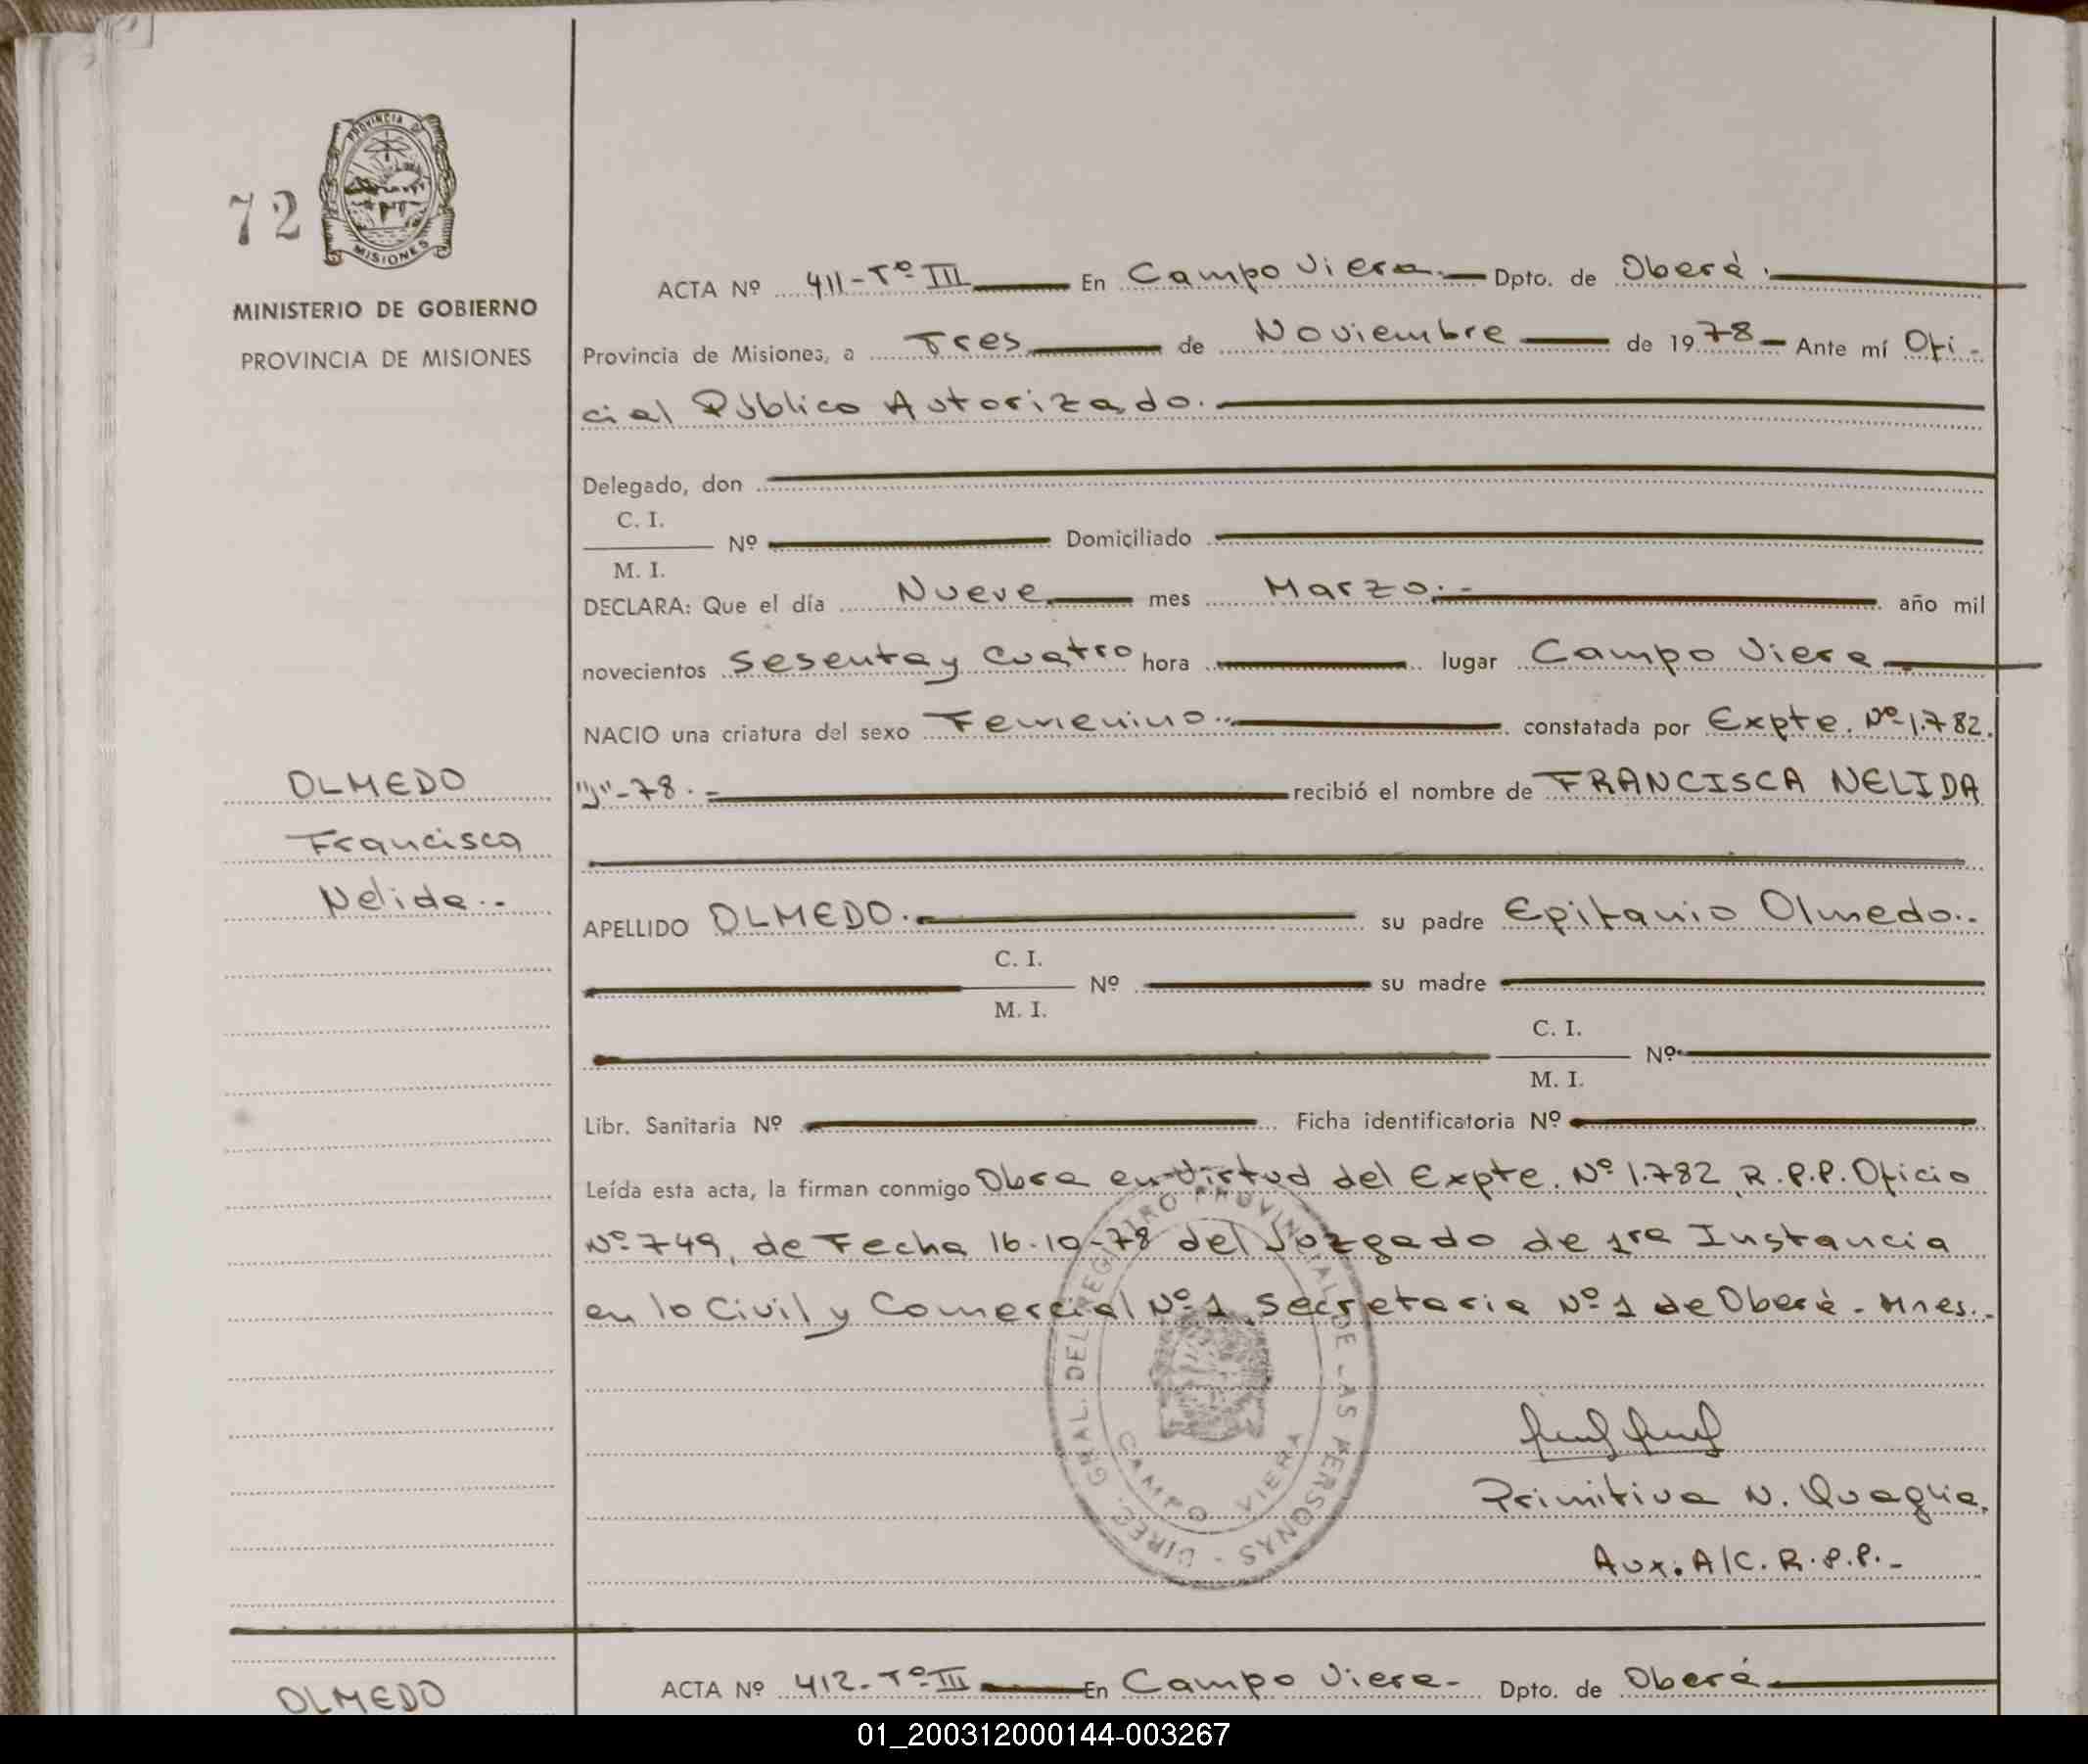 PROVINCIA DE
MISIONES
72
MINISTERIO DE GOBIERNO
PROVINCIA DE MISIONES
ACTA Nº 411-Tº III En Campo Viera.- Dpto. de Oberá.
Provincia de Misiones, a Tres de Noviembre de 1978- Ante mí Ofi-
cial Público Autorizado.
Delegado, don
C. I.
Nº Domiciliado
M. I.
DECLARA: Que el día Nueve mes Marzo.- año mil
novecientos Sesenta y Cuatro hora lugar Campo Viera
NACIO una criatura del sexo Femenino.. constatada por Expte. Nº 1.782.
OLMEDO
"J"-78.= recibió el nombre de FRANCISCA NELIDA
Francisca
Nelida..
APELLIDO OLMEDO. su padre Epifanio Olmedo..
C. I.
Nº su madre
M. I.
C. I.
Nº
M. I.
Libr. Sanitaria Nº Ficha identificatoria Nº
Leída esta acta, la firman conmigo Obra en Virtud del Expte. Nº 1.782 R.P.P. Oficio
Nº 749, de Fecha 16-10-78 del Juzgado de 1ra Instancia
en lo Civil y Comercial Nº 1 Secretaria Nº 1 de Oberá - Mnes.-
DIREC. GRAL. DEL REGISTRO PROVINCIAL DE LAS PERSONAS -
CAMPO VIERA
Primitiva N. Quaglia.
Aux. A/C. R.P.P.-
OLMEDO
ACTA Nº 412-Tº III En Campo Viera- Dpto. de Oberá
01_200312000144-003267